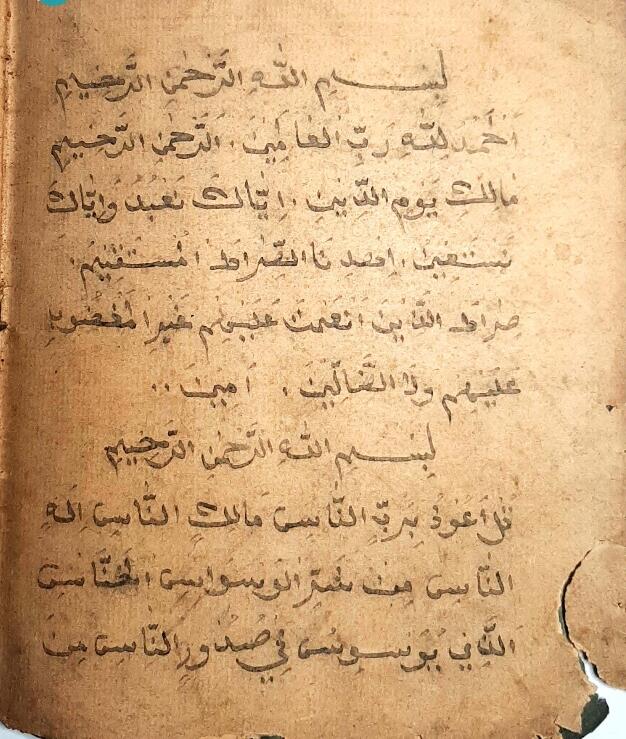 بســـم اللّٰه الرَّحمٰن الرَّحيم
اَلحَمد للّٰه رَبِّ العالمين . الرَّحمٰن الرَّحيم
مَالك يَوم الدّين . ايّاك نَعبُد وَايّاك
نستعين . اهدنَا الصّراط المستقيم .
صراط الّذين انعمت عَليهم غير المَغضُوب
عَليهم ولا الضّالّين . اَمين . .
بســـم اللّٰه الرَّحمٰن الرَّحيم
قل اَعوُذ بِربّ النَّاس مَالك النّاس اله
النّاس من شرّ الوسواس الخنّاس
الّذي يوَسوس في صُدُورِ النّاس منَ